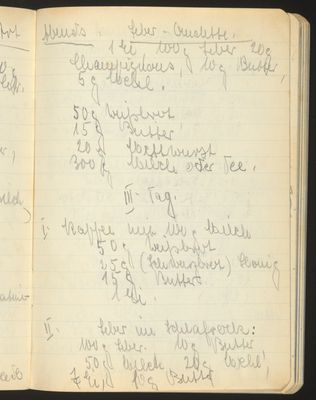 Abends: Leber-Omelette.
1 Ei, 100g Leber 20g
Champignons, 10g Butter,
5g Mehl.
50g Weißbrot
15g Butter
20g Mettwurst
300g Milch oder Tee.
III. Tag.
I. Kaffee mit 100g Milch
50g Weißbrot
25g (Schwarzbrot) Honig
15g Butter
1 Ei.
II. Leber im Schlafrock:
100g Leber. 10g Butter
50g Milch 20g Mehl,
Ei, 10g Butter